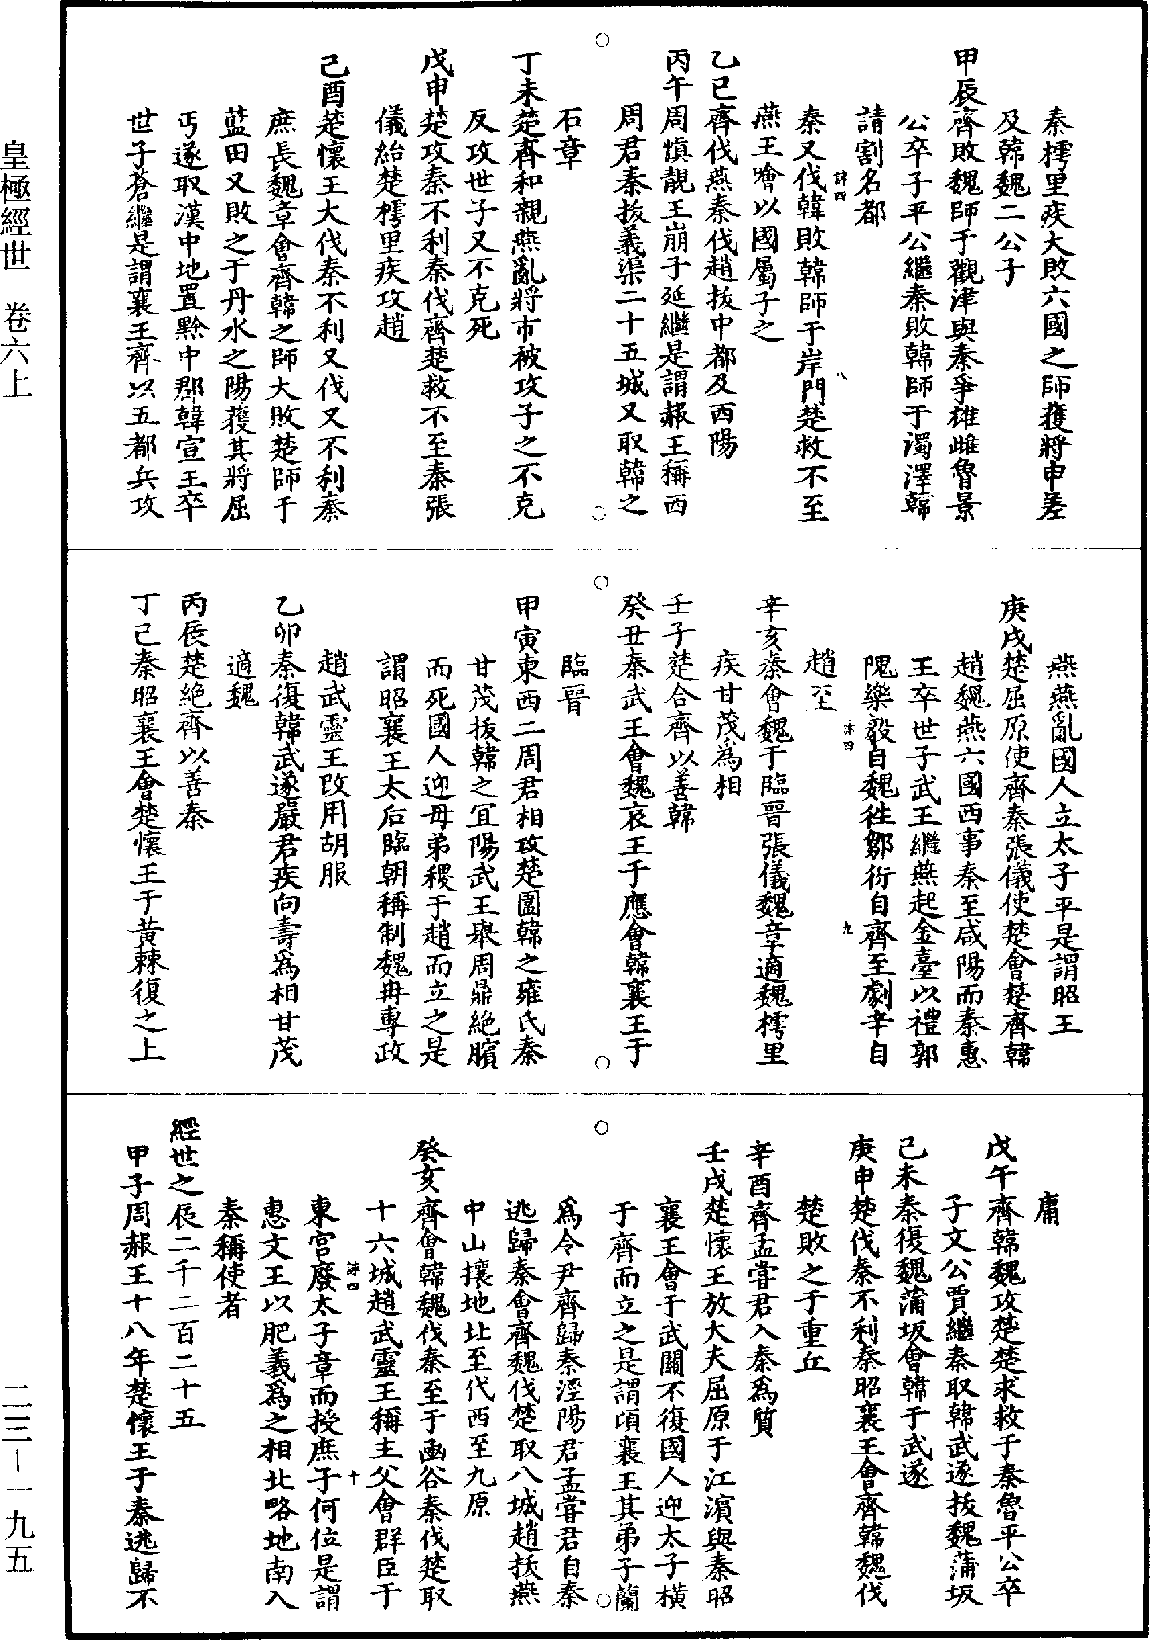 秦樗里疾大敗六國之師獲將申差
及韓魏二公子
甲辰齊敗魏師于觀津與秦爭雄雌魯景
公卒子平公繼秦敗韓師于濁澤韓
請割名都
秦又伐韓敗韓師于岸門楚救不至
燕王噲以國屬子之
乙巳齊伐燕秦伐趙拔中都及西陽
丙午周慎靚王崩子延繼是謂赧王稱西
周君秦拔義渠二十五城又取韓之
石章
丁未楚齊和親燕亂將市被攻子之不克
反攻世子又不克死
戊申楚攻秦不利秦伐齊楚救不至秦張
儀紿楚樗里疾攻趙
己酉楚懷王大伐秦不利又伐又不利秦
庶長魏章會齊韓之師大敗楚師于
藍田又敗之于丹水之陽獲其將屈
丐遂取漢中地置黔中郡韓宣王卒
世子蒼繼是謂襄王齊以五都兵攻
燕燕亂國人立太子平是謂昭王
庚戌楚屈原使齊秦張儀使楚會楚齊韓
趙魏燕六國西事秦至咸陽而秦惠
王卒世子武王繼燕起金臺以禮郭
隗樂毅自魏往鄒衍自齊至劇辛自
趙至
辛亥秦會魏于臨晉張儀魏章適魏樗里
疾甘茂爲相
壬子楚合齊以善韓
癸丑秦武王會魏哀王于應會韓襄王于
臨晉
甲寅東西二周君相攻楚圍韓之雍氏秦
甘茂拔韓之宜陽武王舉周鼎絶臏
而死國人迎母弟稷于趙而立之是
謂昭襄王太后臨朝稱制魏冉專政
趙武靈王改用胡服
乙卯秦復韓武遂嚴君疾向壽爲相甘茂
適魏
丙辰楚絶齊以善秦
丁巳秦昭襄王會楚懷王于黃棘復之上
庸
戊午齊韓魏攻楚楚求救于秦魯平公卒
子文公賈繼秦取韓武遂拔魏蒲坂
己未秦復魏蒲坂會韓于武遂
庚申楚伐秦不利秦昭襄王會齊韓魏伐
楚敗之于重丘
辛酉齊孟嘗君入秦爲質
壬戌楚懷王放大夫屈原于江濱與秦昭
襄王會于武關不復國人迎太子橫
于齊而立之是謂頃襄王其弟子蘭
爲令尹齊歸秦涇陽君孟嘗君自秦
逃歸秦會齊魏伐楚取八城趙拔燕
中山攘地北至代西至九原
癸亥齊會韓魏伐秦至于函谷秦伐楚取
十六城趙武靈王稱主父會群臣于
東宮廢太子章而授庶子何位是謂
惠文王以肥義爲之相北略地南入
秦稱使者
經世之辰二千二百二十五
甲子周赧王十八年楚懷王于秦逃歸不
皇極經世 卷六上
二三—一九五